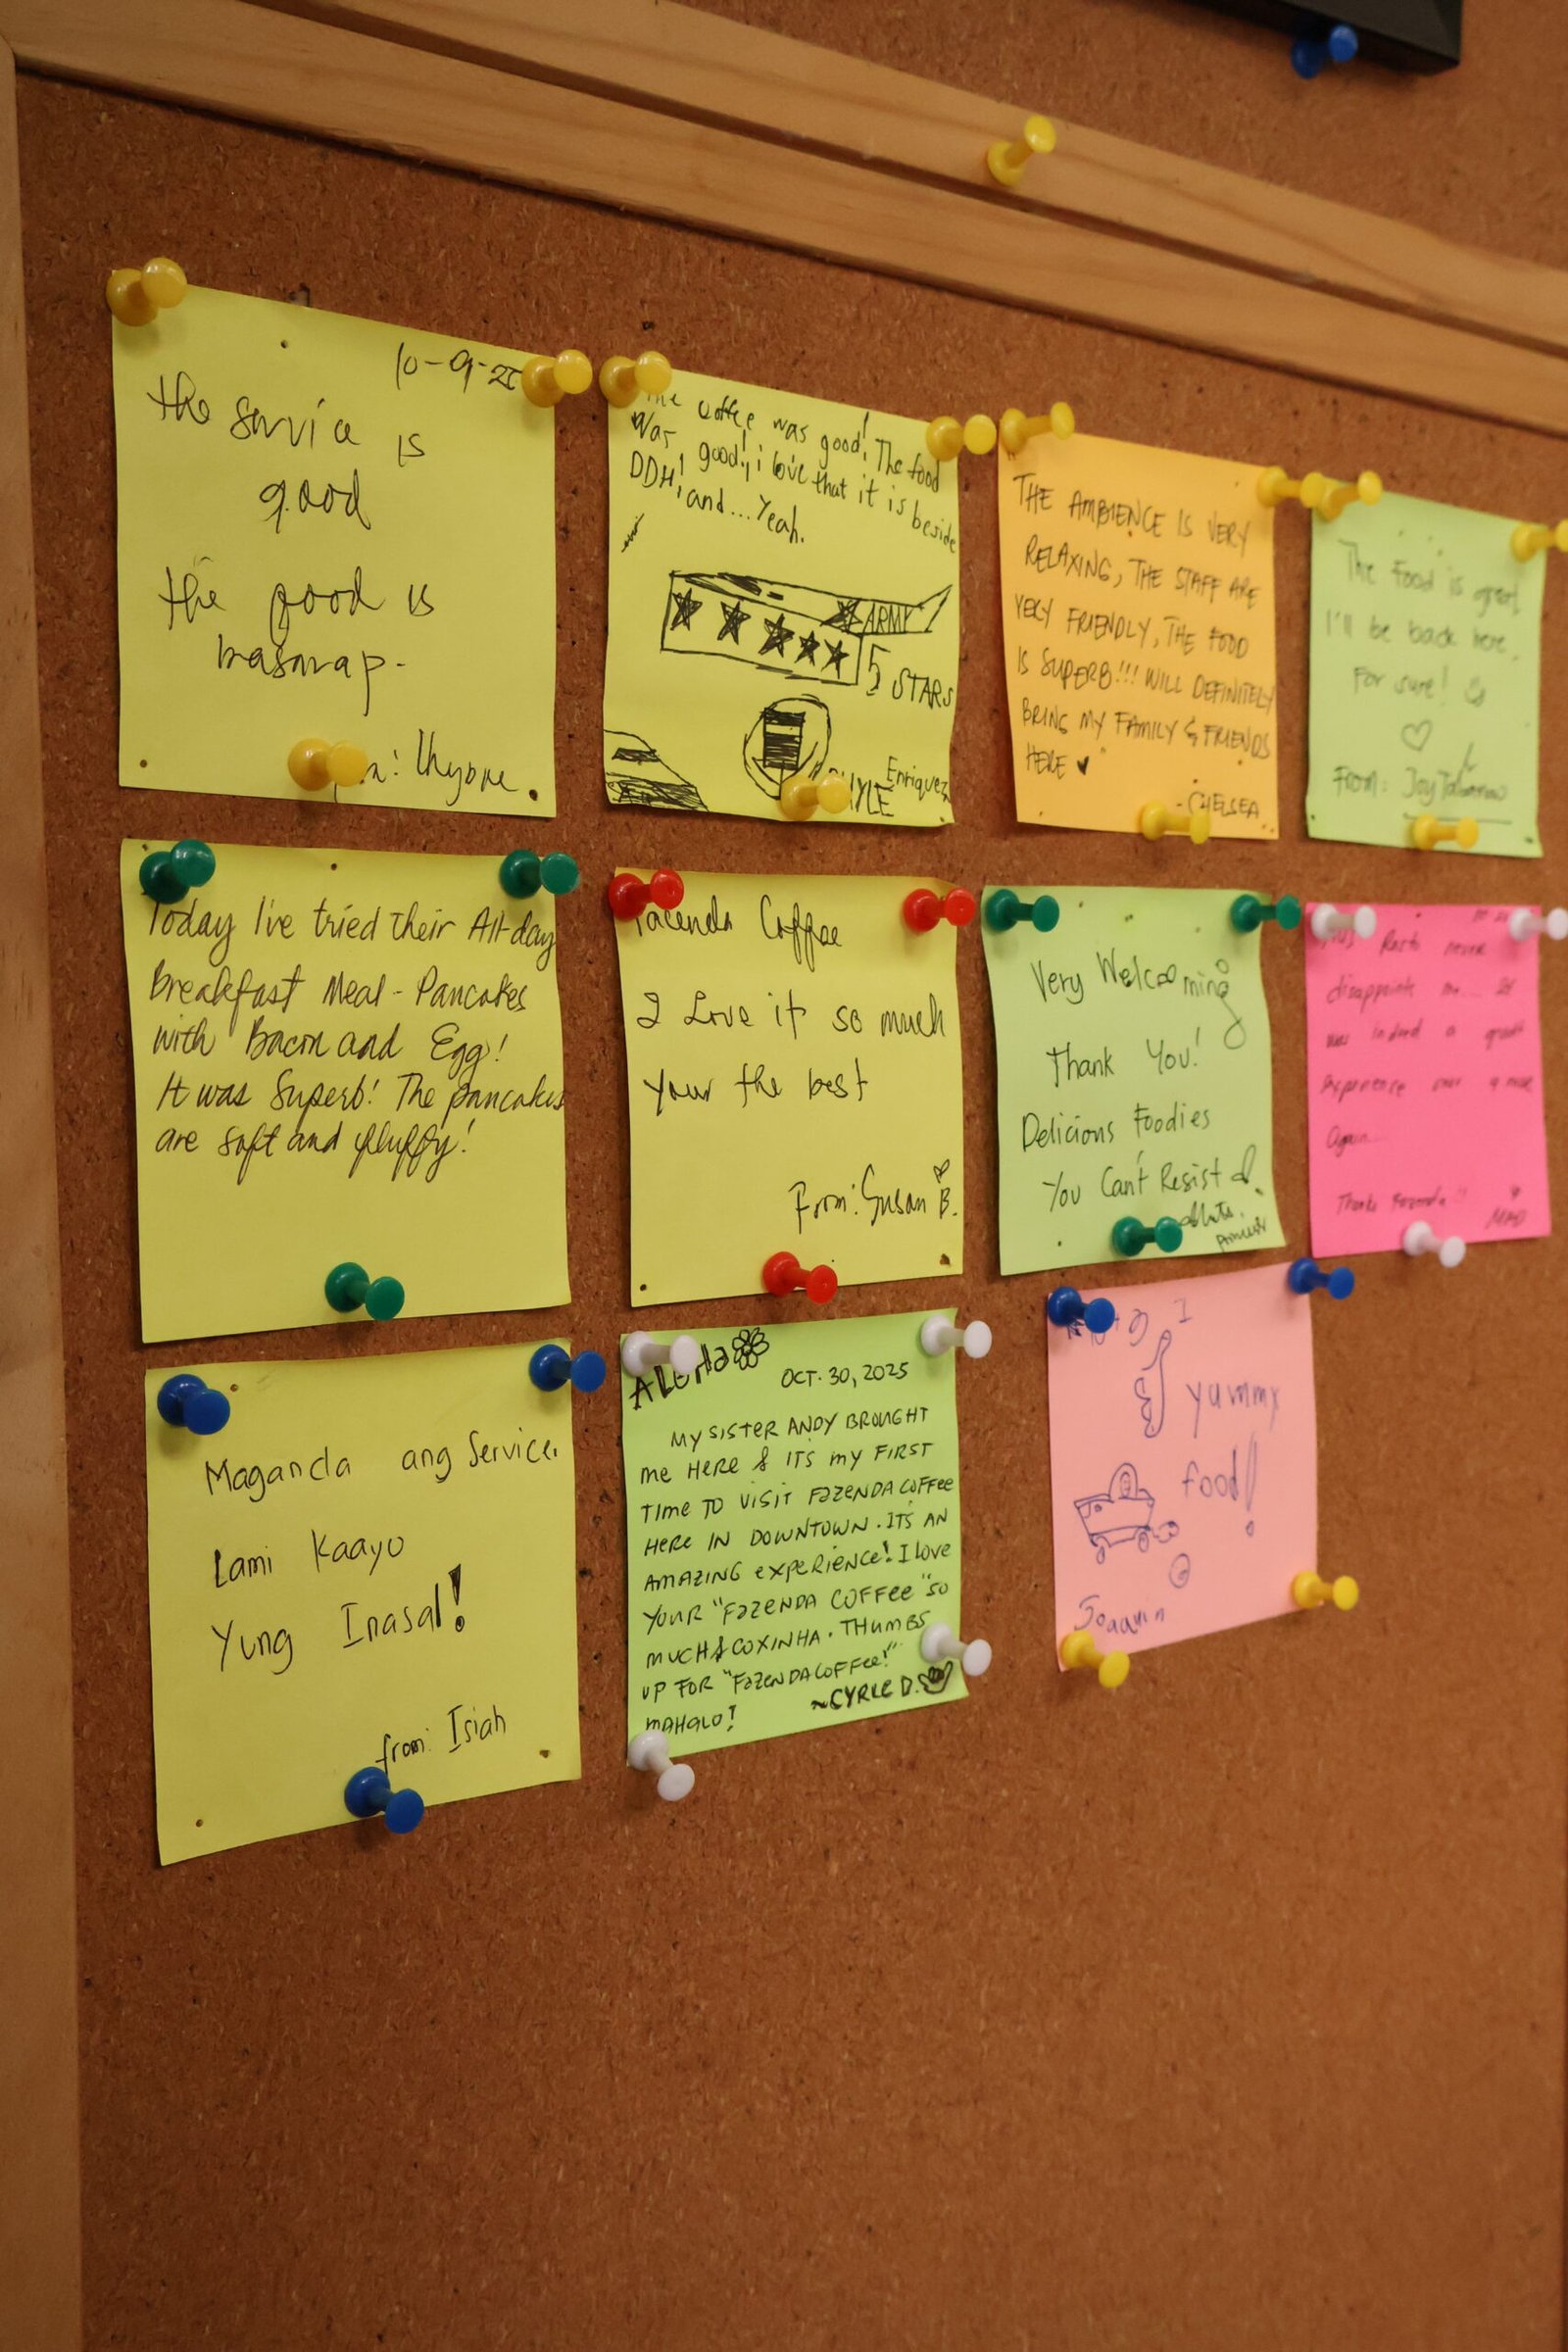 10-9-25
the service is
good
the food is
masarap-
The coffee was good! The food
Was good!, i love that it is beside
DDH! and... Yeah.
ARMY
5 STARS
Enriquez
THE AMBIENCE IS VERY
RELAXING, THE STAFF ARE
VERY FRIENDLY, THE FOOD
IS SUPERB!!! WILL DEFINITELY
BRING MY FAMILY & FRIENDS
HERE ♥
-CHELSEA
The Food is great,
I'll be back here,
For sure!
From: Joy
Today I've tried their All-day
Breakfast Meal - Pancakes
with Bacon and Egg!
It was Superb! The pancakes
are soft and fluffy!
Coffee
I Love it so much
your the best
From: Susan B.
Very Welcoming
Thank You!
Delicious Foodies
You Can't Resist
never
disappoints me...
was indeed a
Experience
Again...
Thanks Fazenda
Maganda ang Service.
Lami Kaayo
Yung Inasal!
from: Isiah
ALOHA
OCT. 30, 2025
MY SISTER ANDY BROUGHT
ME HERE & ITS MY FIRST
TIME TO VISIT FAZENDA COFFEE
HERE IN DOWNTOWN. IT'S AN
AMAZING EXPERIENCE! I LOVE
YOUR "FAZENDA COFFEE" SO
MUCH & COXINHA. THUMBS
UP FOR "FAZENDA COFFEE!"
~CYRLE D.
MAHALO!
yummy
food!
Joaquin